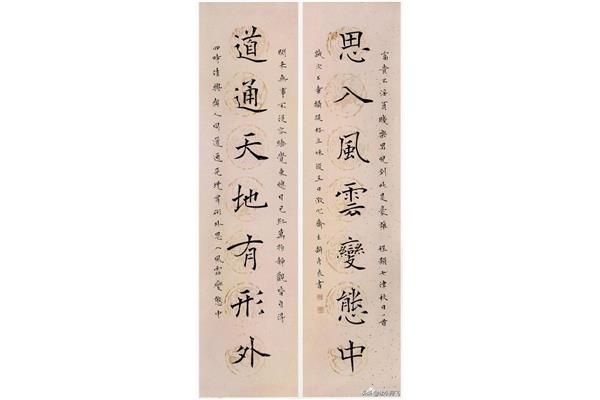 道通天地有形外
思入風雲變態中
閒來無事不從容睡覺東窗日已紅萬物靜觀皆自得
四時佳興與人同道通天地有形外思入風雲變態中
富貴不淫貧賤樂男兒到此是豪雄 程顥七律秋日一首